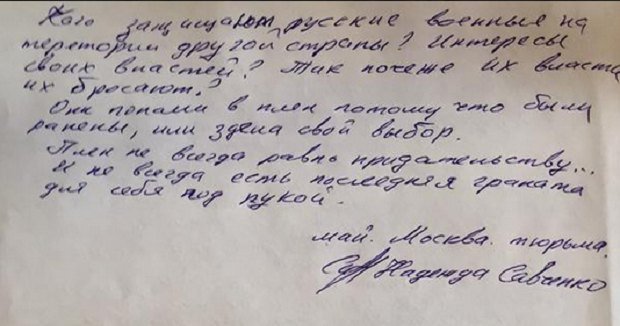 Кого защищают русские военные на
територии другой страны? Интересы
своих властей? Так почему их власти
их бросают?
Они попали в плен потому что были
ранены, или сделав свой выбор.
Плен не всегда равно предательству...
И не всегда есть последняя граната
для себя под рукой.
май. Москва. тюрьма.
Надежда Савченко